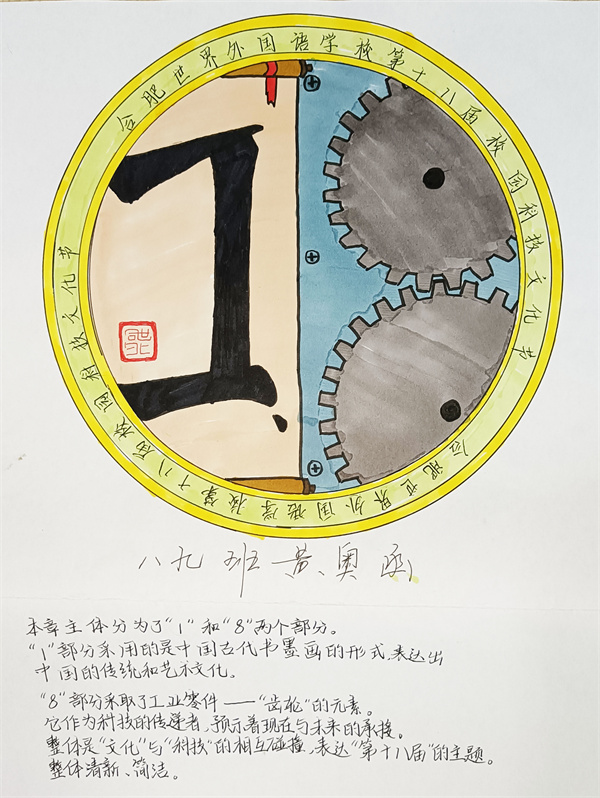 合肥世界外国语学校第十八届校园科技文化节
合肥世界外国语学校第十八届校园科技文化节
八九班黄奥函
本章主体分为了“1”和“8”两个部分。
“1”部分采用的是中国古代书墨画的形式,表达出
中国的传统和艺术文化。
“8”部分采取了工业零件——“齿轮”的元素。
它作为科技的传递者,预示着现在与未来的承接。
整体是“文化”与“科技”的相互碰撞,表达“第十八届”的主题。
整体清新、简洁。